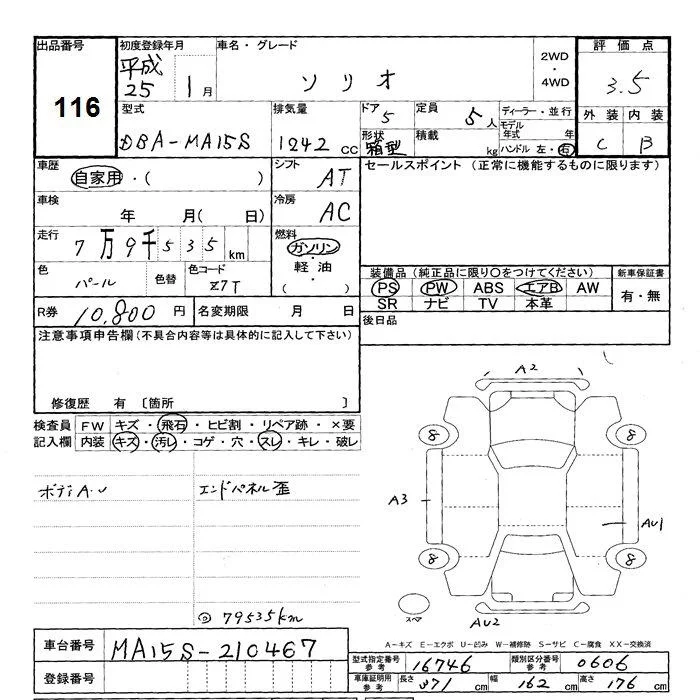 出品番号 初度登録年月 車名・グレード 2WD・4WD 評価点
116 平成25 1月 ソリオ 3.5
型式 排気量 ドア 5 定員 5人 ディーラー・並行 外装 内装
DBA-MA15S 1242 CC 形状 箱型 積載 kg モデル年式 年 C B
ハンドル 左・右
車歴 自家用・( ) シフト AT セールスポイント (正常に機能するものに限ります)
車検 年 月( 日) 冷房 AC
走行 7万9千535km 燃料 ガソリン・軽油・( )
色 パール 色替 色コード Z7T 装備品 (純正品に限り○をつけてください) 新車保証書
PS PW ABS エアB AW 有・無
SR ナビ TV 本革
R券 10,800円 名変期限 月 日 後日品
注意事項申告欄(不具合内容等は具体的に記入して下さい)
修復歴 有 〔箇所 〕
検査員 FW キズ・飛石・ヒビ割・リペア跡・×要
記入欄 内装 キズ・汚レ・コゲ・穴・スレ・キレ・破レ
ボディA.U エンドパネル歪
A2
8 8
A3 AU1
8 8
スペア AU2
◎79535km
A-キズ E-エクボ U-凹み W-補修跡 S-サビ C-腐食 XX-交換済
車台番号 MA15S-210467
型式指定番号 参考 16746 類別区分番号 参考 0606
登録番号
車庫証明用 参考 長さ 371cm 幅 162cm 高さ 176cm